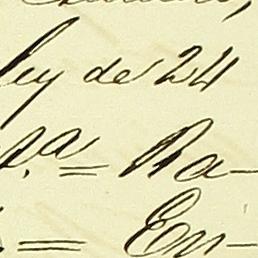 ley de 24
s.ª = Ra-
= En-